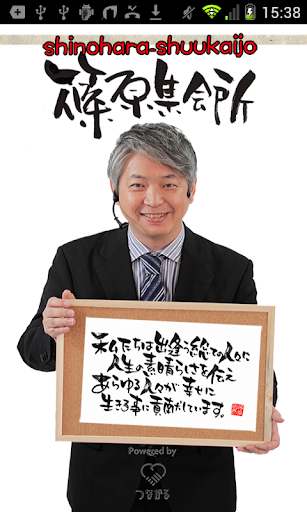 15:38
shinohara-shuukaijo
篠原集会所
私たちは出逢う総ての人に
人生の素晴らしさを伝え
あらゆる人々が幸せに
生きる事に貢献だしています。
Powered by
つながる